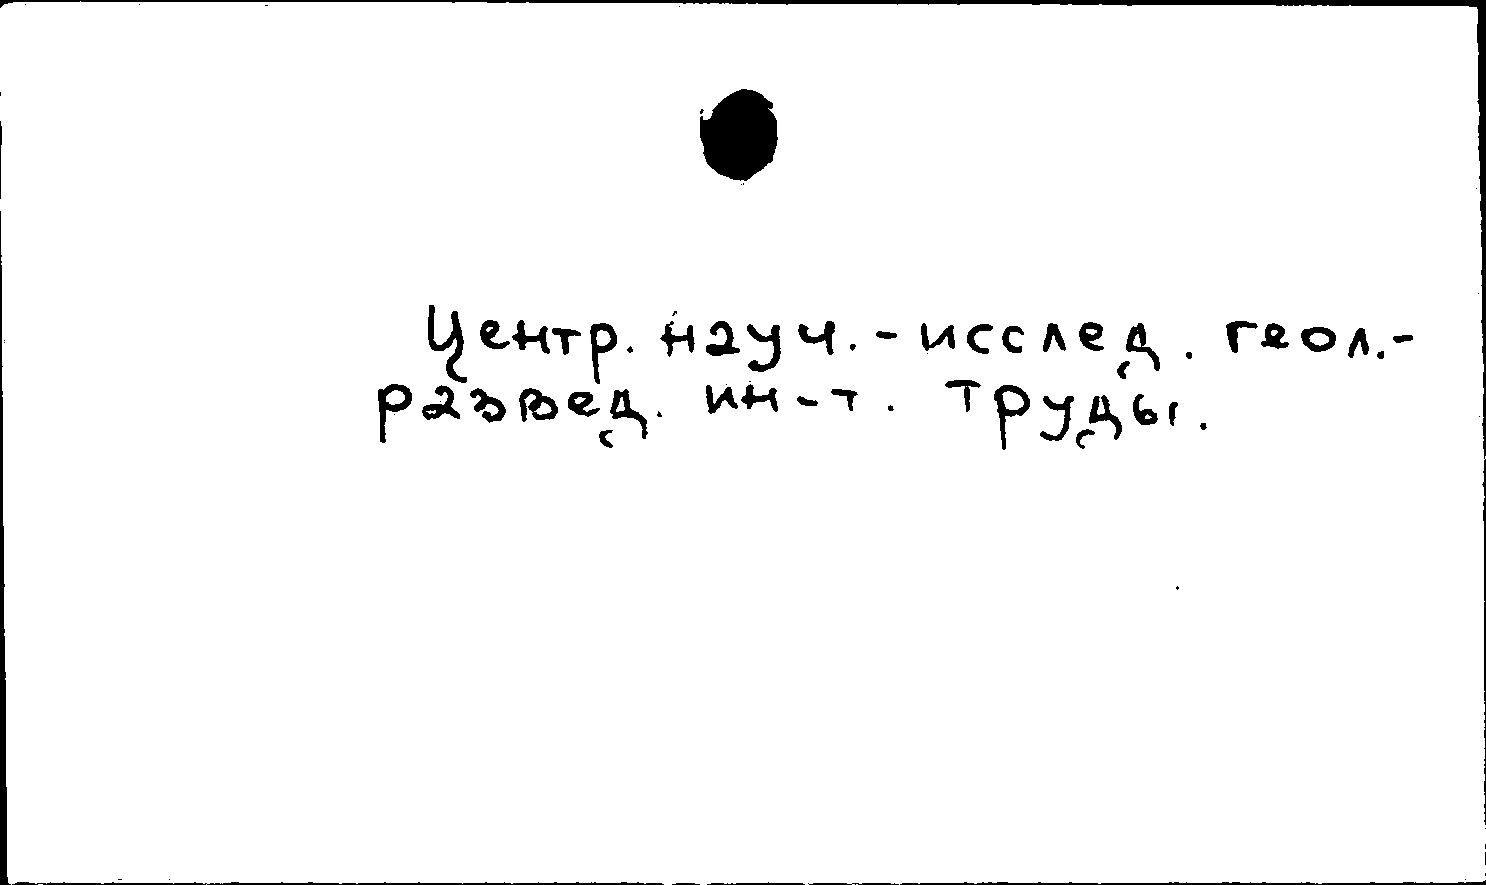 Центр. науч.-исслед. геол.-
развед. ин-т. Труды.